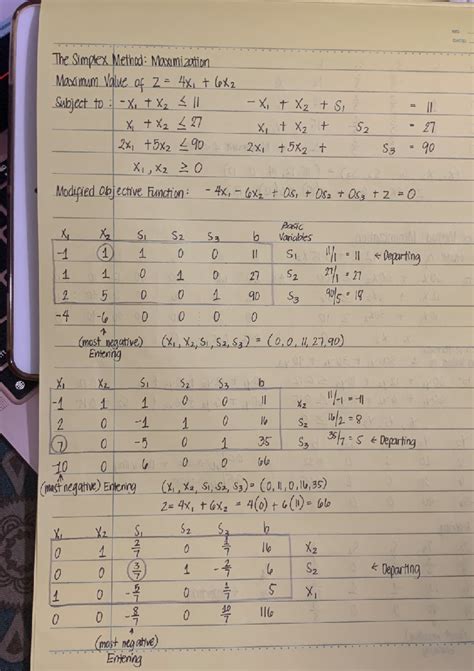 The Simplex Method: Maximization
Maximum Value of Z = 4x₁ + 6x₂
Subject to : -x₁ + x₂ ≤ 11 -x₁ + x₂ + s₁ = 11
x₁ + x₂ ≤ 27 x₁ + x₂ + s₂ = 27
2x₁ + 5x₂ ≤ 90 2x₁ + 5x₂ + s₃ = 90
x₁, x₂ ≥ 0
Modified Objective Function: -4x₁ - 6x₂ + 0s₁ + 0s₂ + 0s₃ + z = 0
x₁ x₂ s₁ s₂ s₃ b Basic Variables
-1 1 1 0 0 11 s₁ 11/1 = 11 ← Departing
1 1 0 1 0 27 s₂ 27/1 = 27
2 5 0 0 1 90 s₃ 90/5 = 18
-4 -6 0 0 0 0
↑
(most negative) (x₁, x₂, s₁, s₂, s₃) = (0, 0, 11, 27, 90)
Entering
x₁ x₂ s₁ s₂ s₃ b
-1 1 1 0 0 11 x₂ 11/-1 = -11
2 0 -1 1 0 16 s₂ 16/2 = 8
7 0 -5 0 1 35 s₃ 35/7 = 5 ← Departing
-10 0 6 0 0 66
(most negative) Entering (x₁, x₂, s₁, s₂, s₃) = (0, 11, 0, 16, 35)
z = 4x₁ + 6x₂ = 4(0) + 6(11) = 66
x₁ x₂ s₁ s₂ s₃ b
0 1 2/7 0 1/7 16 x₂
0 0 3/7 1 -2/7 6 s₂ ← Departing
1 0 -5/7 0 1/7 5 x₁
0 0 -8/7 0 10/7 116
↑
(most negative)
Entering